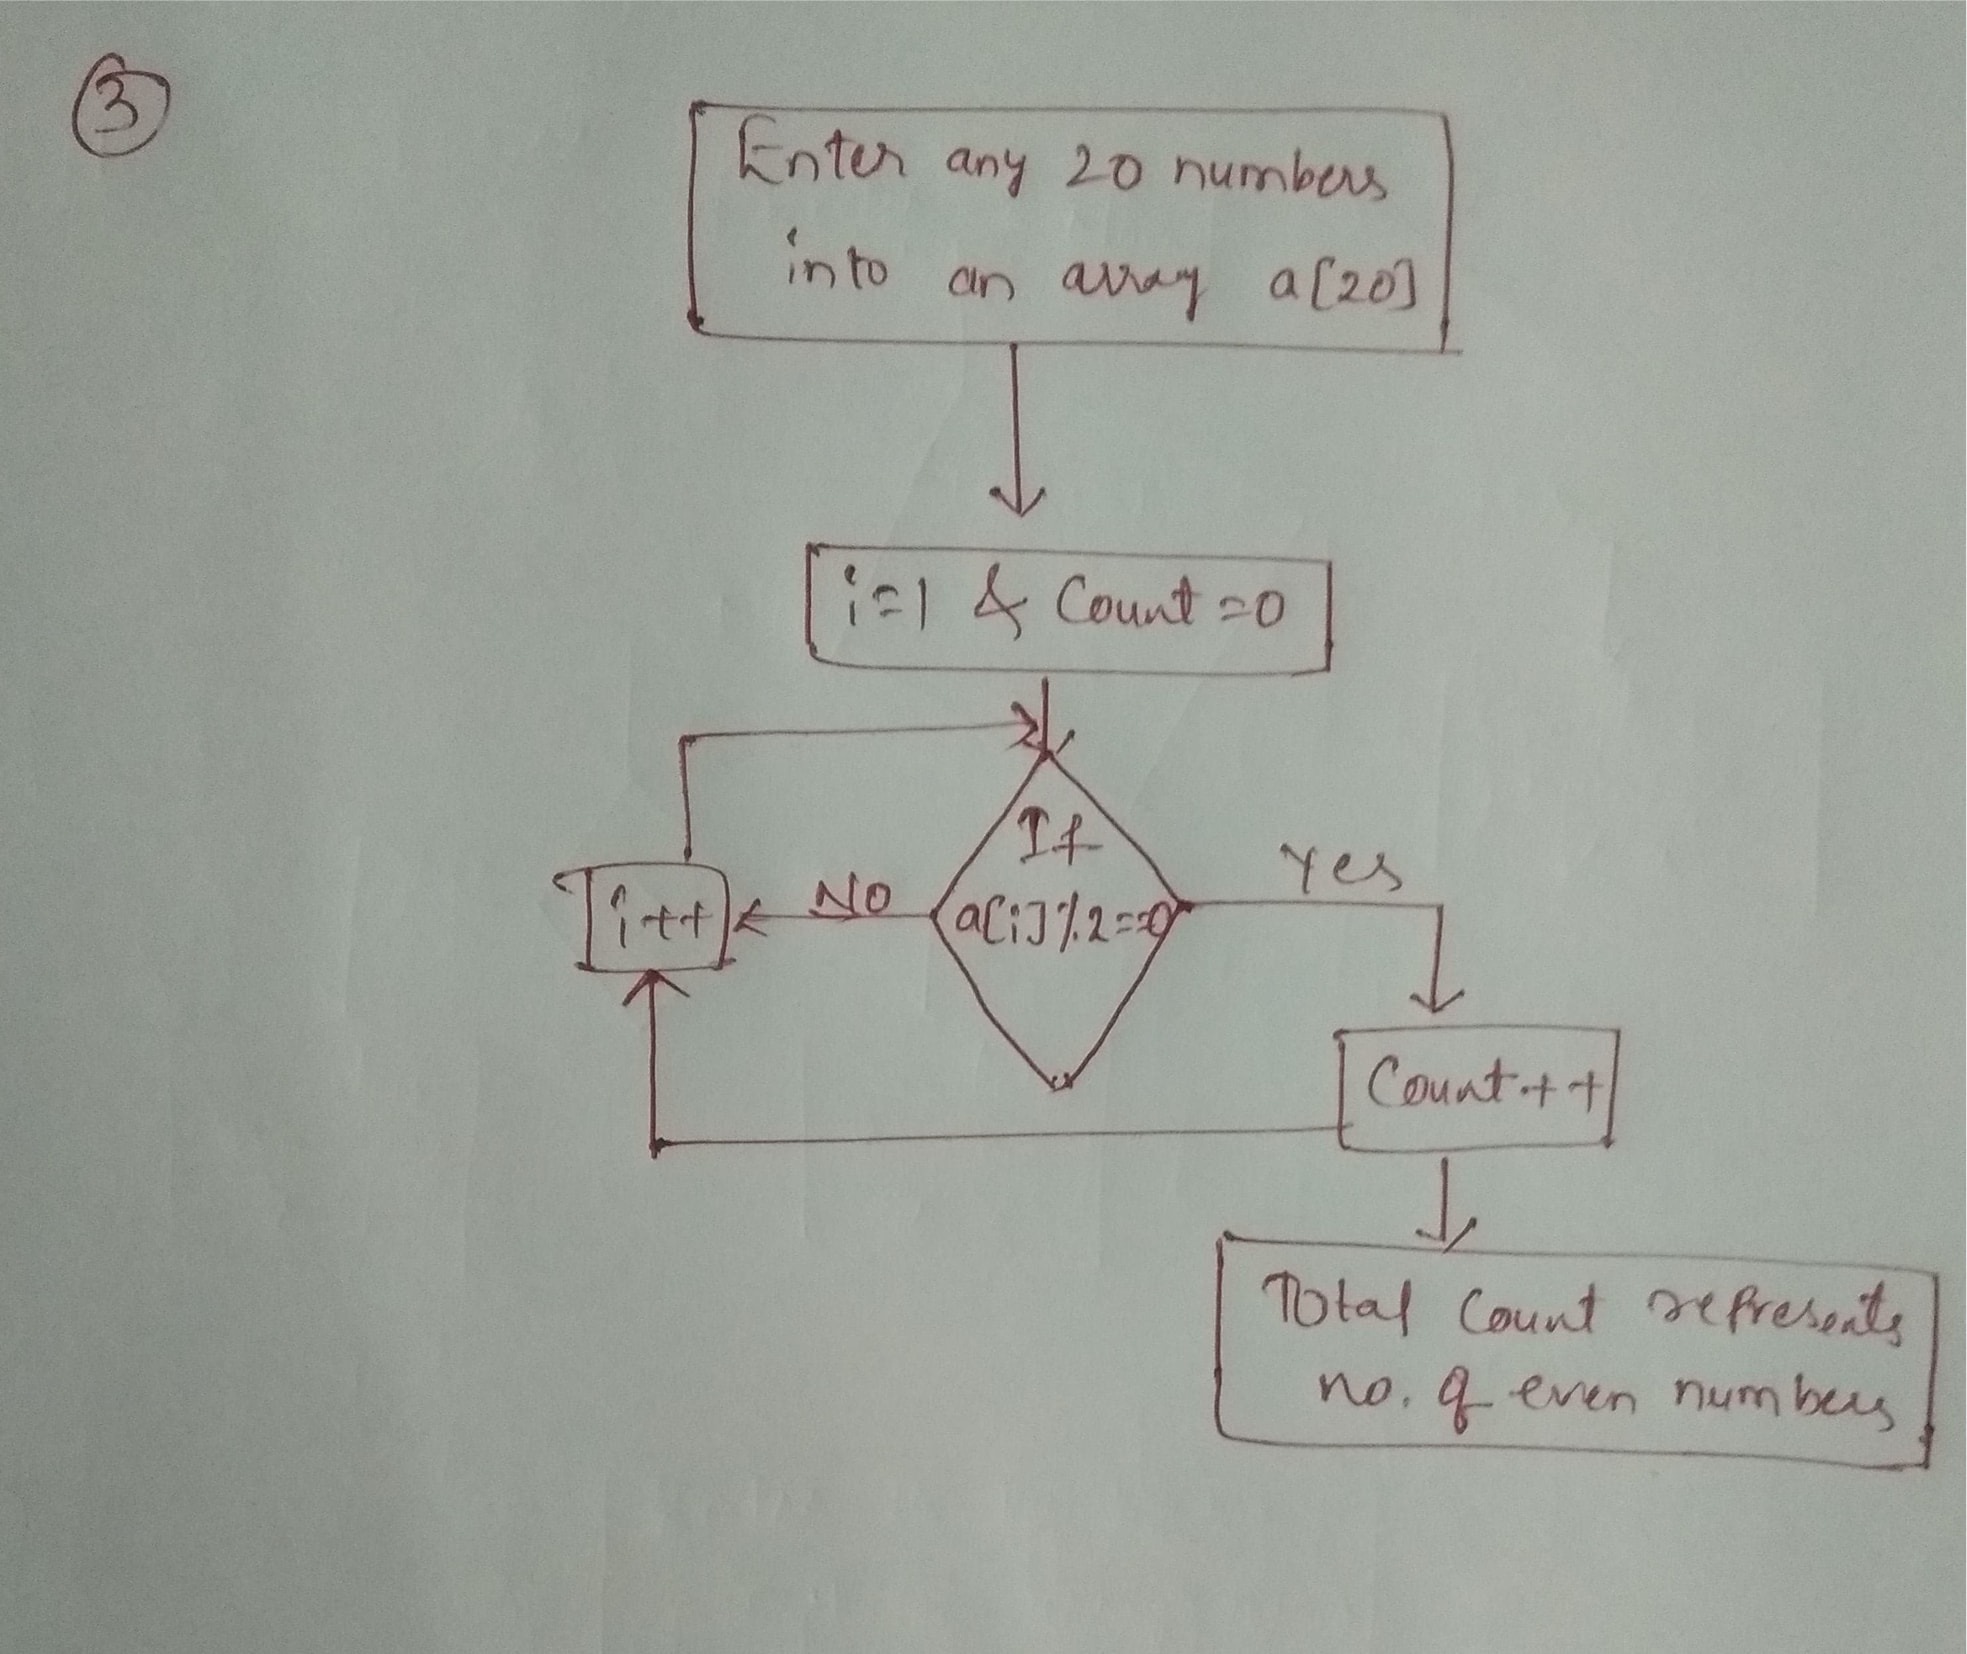 3
Enter any 20 numbers
into an array a[20]
i=1 & Count=0
If
a[i]%2==0
Yes
NO
i++
Count++
Total Count represents
no. of even numbers